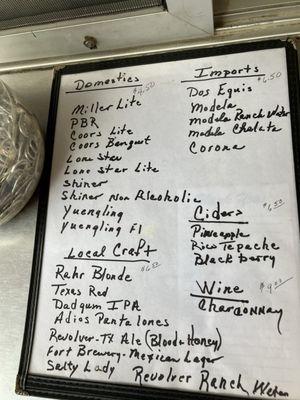 Domestics $4.50
Miller Lite
PBR
Coors Lite
Coors Banquet
Lone Star
Lone Star Lite
Shiner
Shiner Non Alcoholic
Yuengling
Yuengling Fl
Local Craft
$6.50
Rahr Blonde
Texas Red
Dadgum IPA
Adios Pantalones
Revolver-TX Ale (Blood & Honey)
Fort Brewery-Mexican Lager
Salty Lady
Revolver Ranch Water
Imports
$6.50
Dos Equis
Modela
Modela Ranch Water
Modela Chelata
Corona
Ciders
$6.50
Pineapple
Rico Tepache
Blackberry
Wine
$9.00
Chardonnay